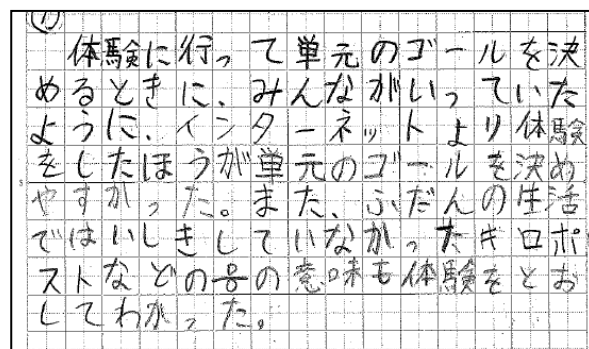 (1)
体験に行って単元のゴールを決
めるときに、みんながいっていた
ように、インターネットより体験
をしたほうが単元のゴールを決め
やすかった。また、ふだんの生活
ではいしきしていなかったキロポ
ストなどの号の意味も体験をとお
してわかった。